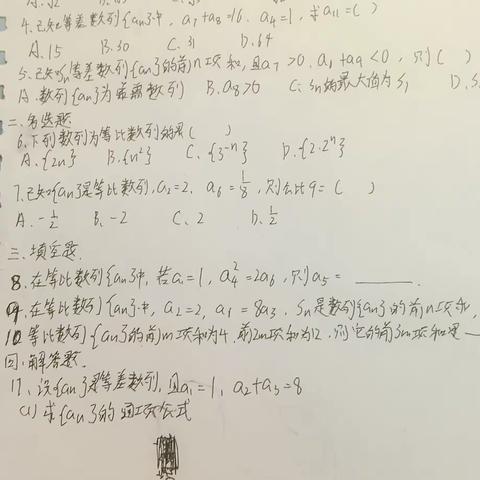 4.已知等差数列{an}中，a₇+a₈=16，a₄=1，求a₁₁=( )
A.15 B.30 C.31 D.64
5.已知Sn等差数列{an}的前n项和,且a₇>0,a₆+a₉<0，则( )
A.数列{an}为 数列 B.a₈>0 C.Sn的最大值为S₇ D.S
二.多选题
6.下列数列为等比数列的是( )
A.{2n} B.{n²} C.{3⁻ⁿ} D.{2·2ⁿ}
7.已知{an}是等比数列,a₂=2，a₆=1/8，则公比q=( )
A.-1/2 B.-2 C.2 D.1/2
三.填空题.
8.在等比数列{an}中，若a₁=1，a₄²=2a₆，则a₅=____.
9.在等比数列{an}中，a₂=2，a₆=8a₃，Sn是数列{an}的前n项和,
10.等比数列{an}的前m项和为4,前2m项和为12,则它的前3m项和是
四.解答题.
11、设{an}是等差数列，且a₁=1，a₂+a₃=8
(1)求{an}的通项公式